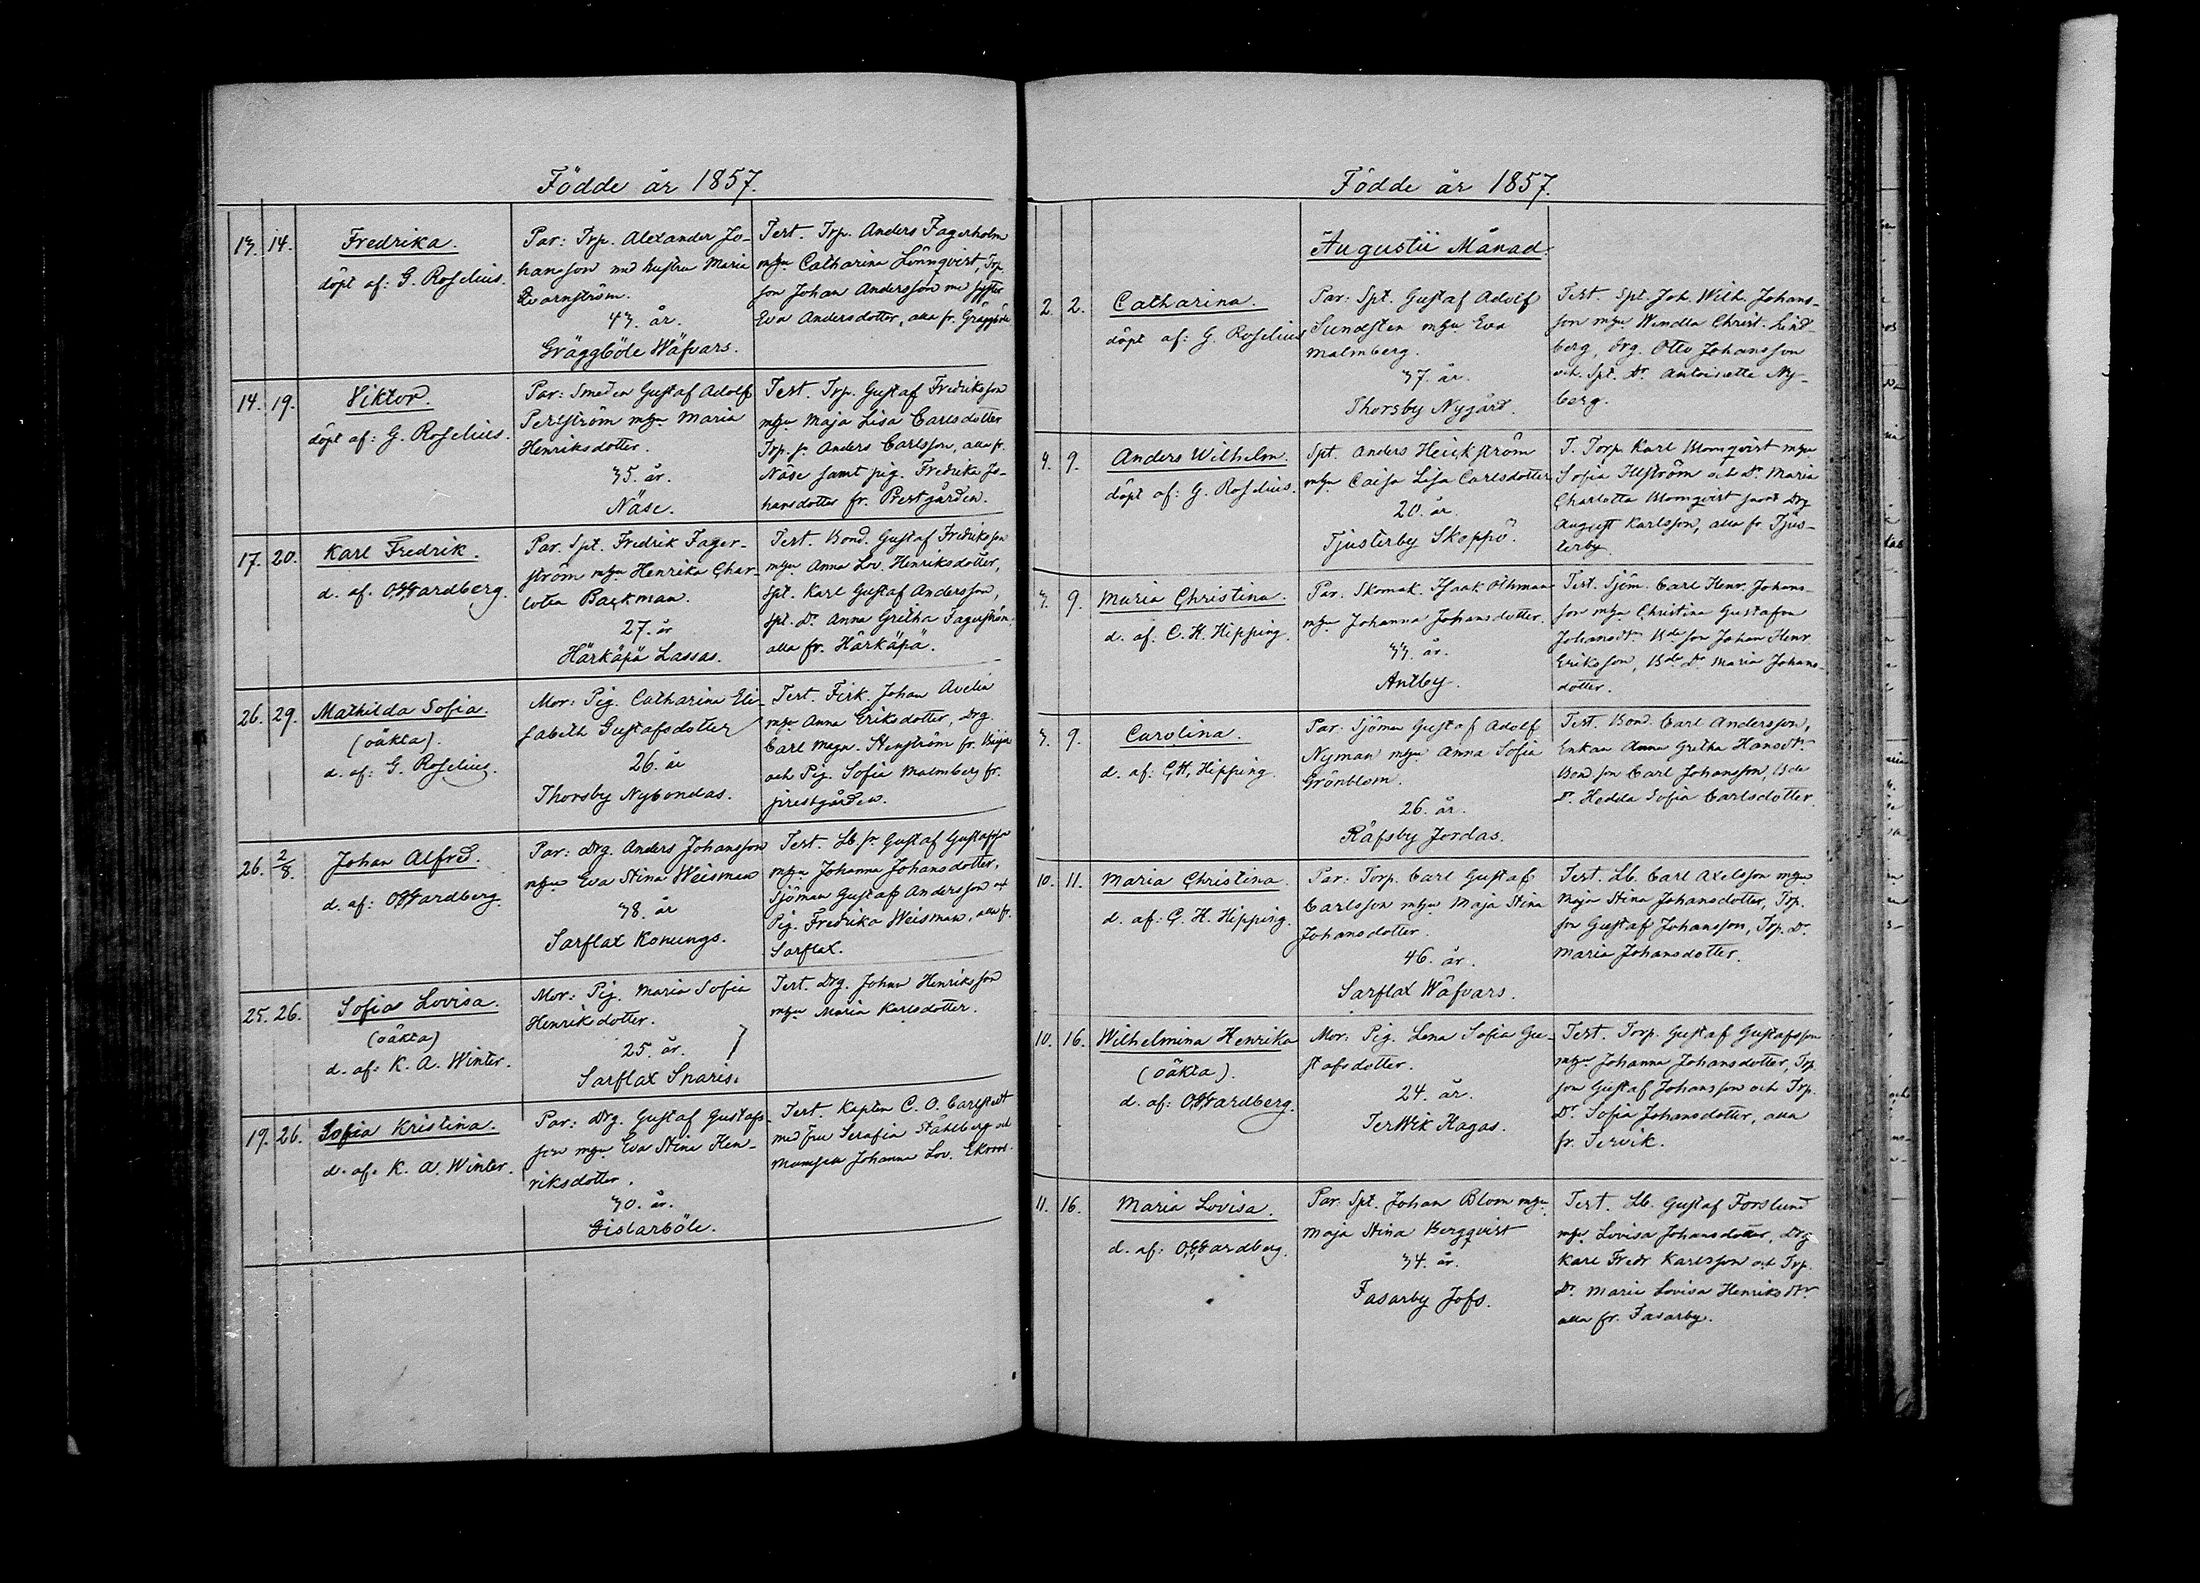 Födde år 1857.
13. 14. Fredrika.
döpt af: G. Roselius.
Par: Trp. Alexander Jo-
hansson med hustru Maria
Qvarnström.
43. år.
Gräggböle Wäfvars.
Tert. Trp. Anders Fagerholm
m hu Catharina Lönnqvist, Trp
son Johan Andersson m syster
Eva Andersdotter, alla fr. Gräggböle
14. 19. Viktor.
döpt af: G. Roselius.
Par: Smeden Gustaf Adolf
Perlström m hu Maria
Henriksdotter.
35. år.
Näse.
Tert. Trp. Gustaf Fredriksson
m hu Maja Lisa Carlsdotter
Trp. sn Anders Carlsson, alla fr.
Näse samt pig. Fredrika Jo-
hansdotter fr. Prestgården.
17. 20. Karl Fredrik.
d. af O. Wardberg.
Par. Spt. Fredrik Fager-
ström m hu Henrika Char-
lotta Backman.
27. år
Härkäpä Lassas.
Tert. Bond. Gustaf Fredriksson
m hu Anna Lov. Henriksdotter,
spt. Karl Gustaf Andersson,
spt. Dr Anna Gretha Fagerström,
alla fr. Härkäpä.
26. 29. Mathilda Sofia.
(oäkta).
d. af: G. Roselius.
Mor: Pig. Catharina Eli-
sabeth Gustafsdotter
26. år
Thorsby Nybondas.
Tert. Fisk. Johan Avelin
m hu Anna Eriksdotter, Drg.
Carl Magn. Stenström fr.
och Pig. Sofia Malmberg fr.
prestgården.
26. 2/8. Johan Alfred.
d. af: O. Wardberg.
Par: Drg. Anders Johansson
m hu Eva Stina Weisman
38. år
Sarflax Konungs.
Tert. Lb. sn Gustaf Gustafsson
m hu Johanna Johansdotter,
Sjöman Gustaf Andersson och
Pig. Fredrika Weisman, alla fr.
Sarflax.
25. 26. Sofia Lovisa.
(oäkta)
d. af: K. A. Winter.
Mor: Pig. Maria Sofia
Henriksdotter.
25. år.
Sarflax Snaris.
Tert. Drg. Johan Henriksson
m hu Maria Karlsdotter.
19. 26. Sofia Kristina.
d. af. K. A. Winter.
Par: Drg. Gustaf Gustafs-
son m hu Eva Stina Hen-
riksdotter.
30. år.
Gislarböle.
Tert. Kapten C. O. Carlstedt
med fru Serafia Ståhlberg och
Mamsell Johanna Lov. Ekroos.
Födde år 1857.
Augustii Månad.
2. 2. Catharina.
döpt af: G. Roselius
Par: Spt. Gustaf Adolf
Sundsten m hu Eva
Malmberg.
37. år.
Thorsby Nygård.
Tert. Spt. Joh. Wilh. Johans-
son m hu Wendla Christ. Lind-
berg, Drg. Otto Johansson
och Spt. Dr Antoinette Ny-
berg.
4. 9. Anders Wilhelm
döpt af: G. Roselius.
Spt. Anders Heickström
m hu Caisa Lisa Carlsdotter
20. år.
Tjusterby Skoppö.
T. Torp. Karl Blomqvist m hu
Sofia Illström och Dr Maria
Charlotta Blomqvist samt Drg
August Karlsson, alla fr. Tjus-
terby.
3. 9. Maria Christina.
d. af. C. H. Hipping.
Par. Skomak. Isaak Othman
m hu Johanna Johansdotter.
33. år.
Antby.
Tert. Sjöm. Carl Henr. Johans-
son m hu Christina Gustafva
Johansdtr Bde son Johan Henr.
Eriksson, Bde Dr Maria Johans-
dotter.
3. 9. Carolina.
d. af: C. H. Hipping.
Par: Sjöman Gustaf Adolf
Nyman m hu Anna Sofia
Grönblom.
26. år.
Räfsby Jordas.
Tert. Bond. Carl Andersson,
Enkan Anna Gretha Hansdtr
Bond. son Carl Johansson, Bde
Dr. Hedda Sofia Carlsdotter.
10. 11. Maria Christina.
d. af: C. H. Hipping.
Par: Torp. Carl Gustaf
Carlsson m hu Maja Stina
Johansdotter.
46. år.
Sarflax Wäfvars.
Tert. Lb. Carl Axelsson m hu
Maja Stina Johansdotter, Trp.
son Gustaf Johansson, Trp. Dr.
Maria Johansdotter.
10. 16. Wilhelmina Henrika
(oäkta).
d. af: O. Wardberg.
Mor: Pig. Lena Sofia Gu-
stafsdotter.
24. år.
Terwik Hagas.
Tert. Torp. Gustaf Gustafsson
m hu Johanna Johansdotter, Trp
son Gustaf Johansson och Trp.
Dr. Sofia Johansdotter, alla
fr. Tervik.
11. 16. Maria Lovisa.
d. af: O. Wardberg.
Par. Spt. Johan Blom m hu
Maja Stina Bergqvist
34. år.
Fasarby Jofs.
Tert. Lb. Gustaf Forslund
m hu Lovisa Johansdotter, Drg
Karl Fredr. Karlsson och Trp.
Dr. Maria Lovisa Henriksdtr
alla fr. Fasarby.